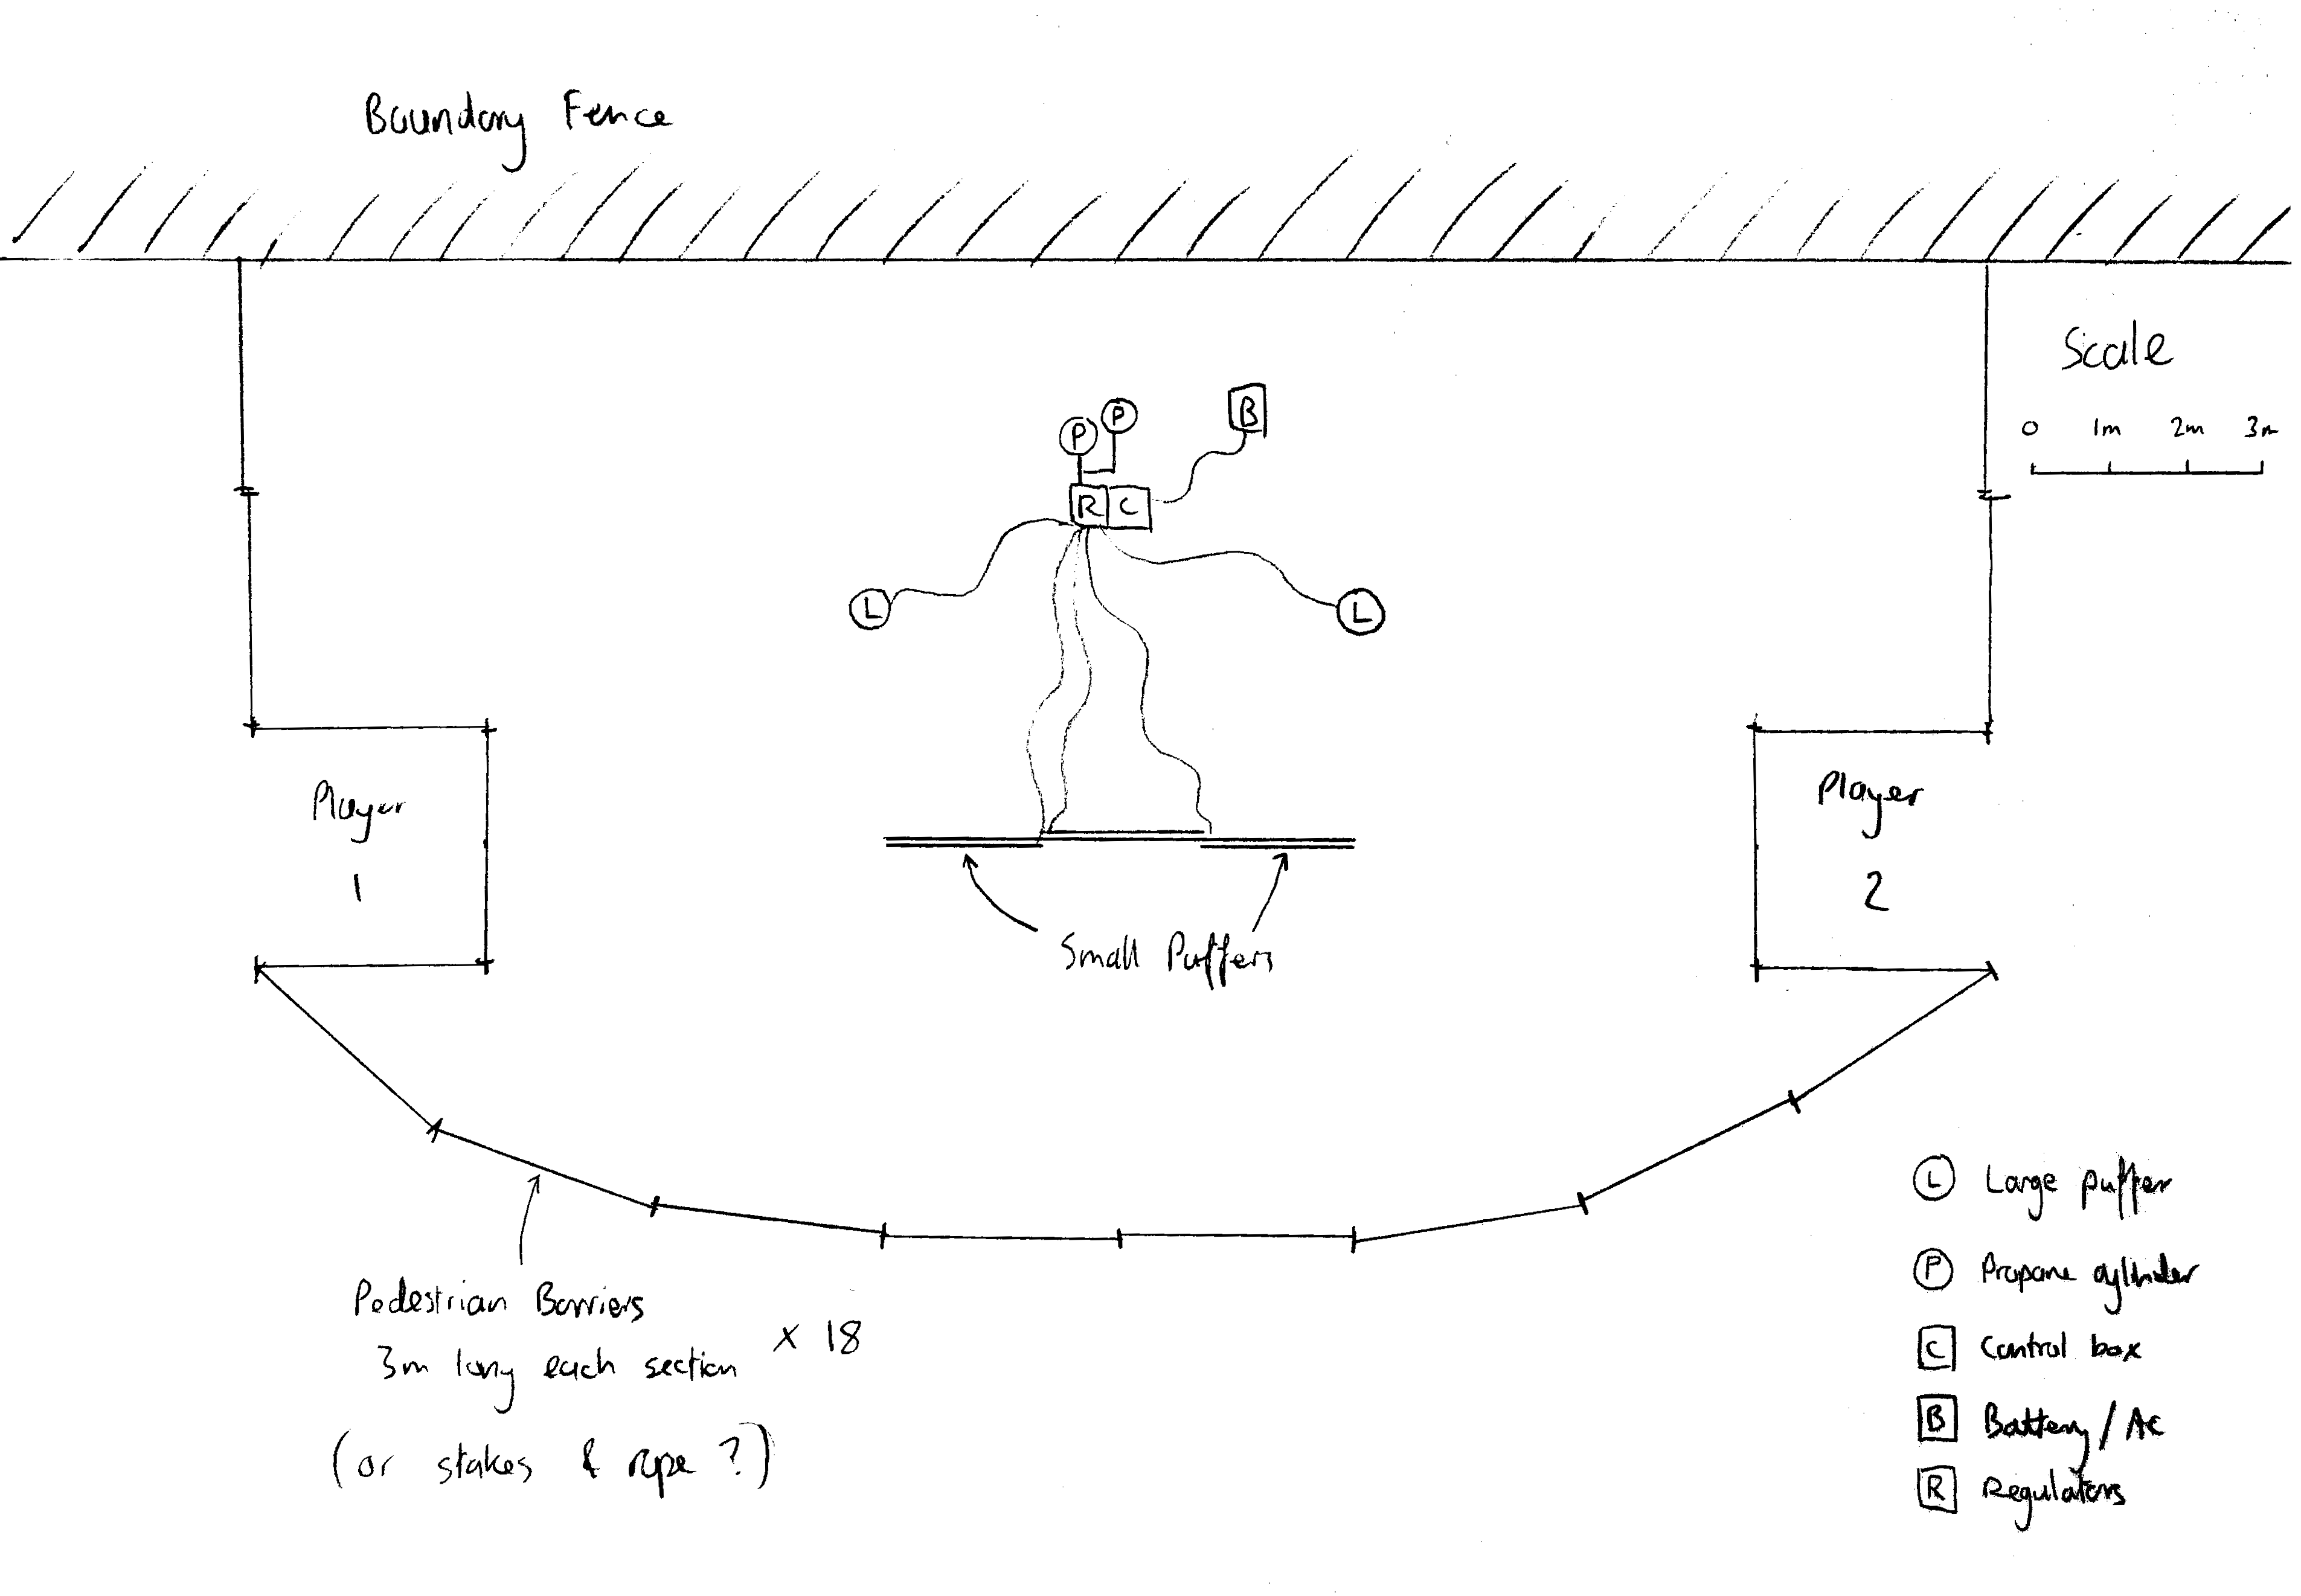 Boundary Fence
Scale
0 1m 2m 3m
P
P
B
R C
L
L
Player
1
Player
2
Small Puffers
Pedestrian Barriers
3m long each section x 18
(or stakes & rope ?)
L Large puffer
P Propane cylinder
C Control box
B Battery / AC
R Regulators